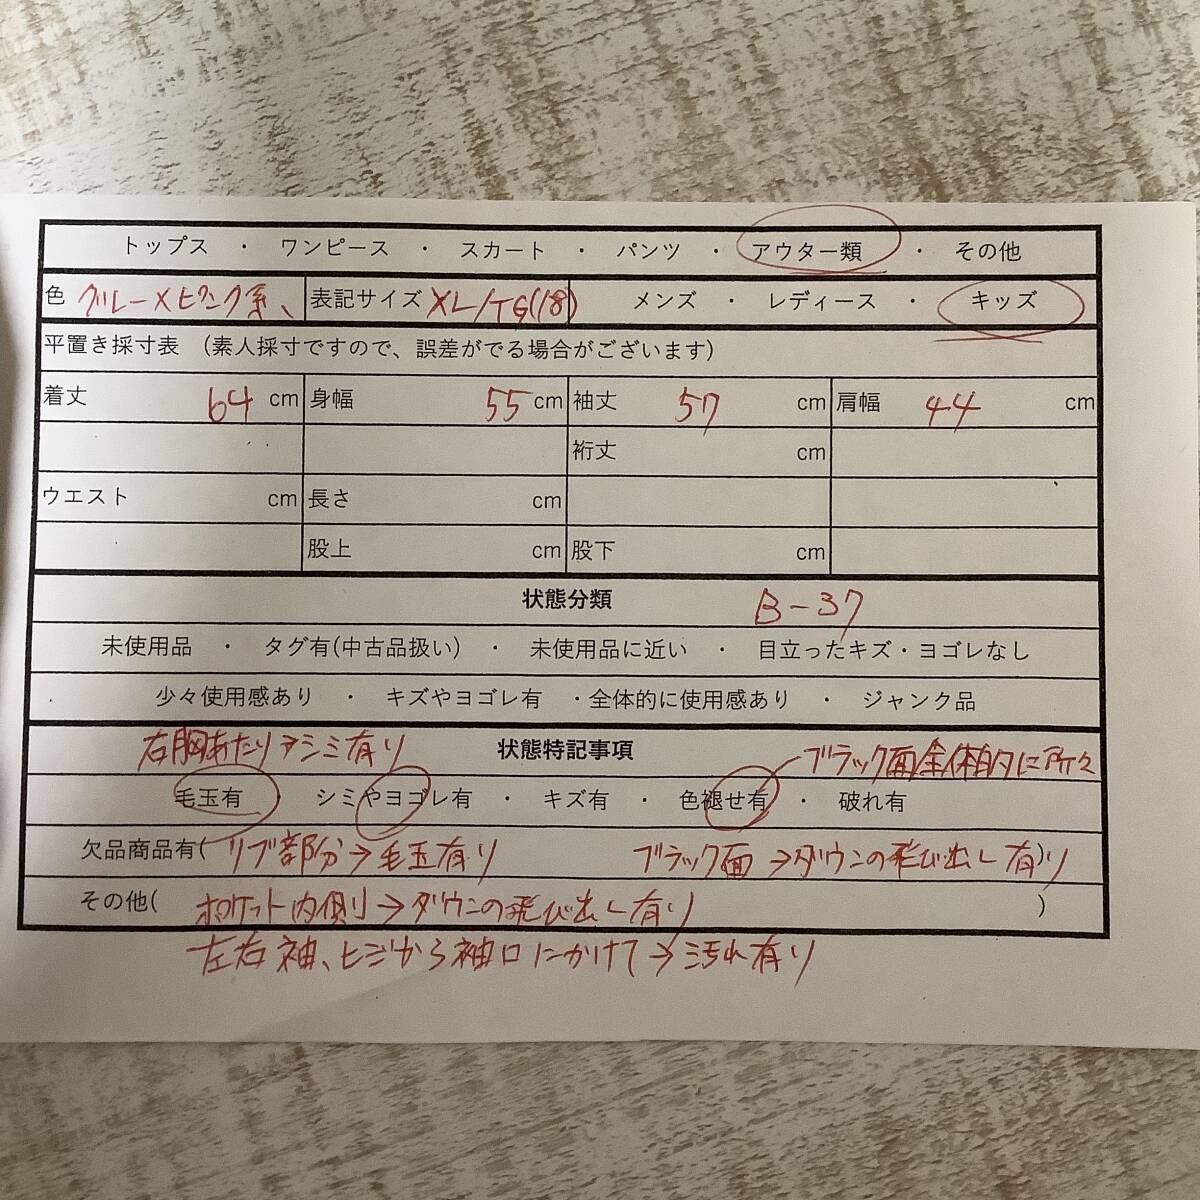 トップス ・ ワンピース ・ スカート ・ パンツ ・ アウター類 ・ その他
色 グレー×ピンク系、 表記サイズ XL/TG(18) メンズ ・ レディース ・ キッズ
平置き採寸表 (素人採寸ですので、誤差がでる場合がございます)
着丈 64 cm 身幅 55 cm 袖丈 57 cm 肩幅 44 cm
裄丈 cm
ウエスト cm 長さ cm
股上 cm 股下 cm
状態分類 B-37
未使用品 ・ タグ有(中古品扱い) ・ 未使用品に近い ・ 目立ったキズ・ヨゴレなし
少々使用感あり ・ キズやヨゴレ有 ・全体的に使用感あり ・ ジャンク品
右胸あたり→シミ有り 状態特記事項 ブラック面全体的に所々
毛玉有 ・ シミやヨゴレ有 ・ キズ有 ・ 色褪せ有 ・ 破れ有
欠品商品有( リブ部分→毛玉有り ブラック面→ダウンの飛び出し有り )
その他( ポケット内側→ダウンの飛び出し有り )
左右袖、ヒジから袖口にかけて→汚れ有り